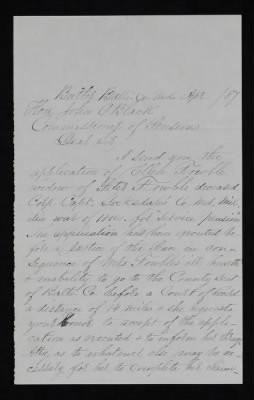 Balto Co. Md. Apr /87
Hon. John C. Black
Commissioner of Pensions
Dear Sir
I send you the
application of Ellen
widow of deceased
Capt. Co. Md. Mil.
war of 1812, for service pension
The application has been executed be
fore a Justice of the Peace in con
sequence of Mrs ill health
& inability to go to the County Seat
of Balto Co. before a Court of Record
a distance of 14 miles & she requests
your to accept of the appli
cation as executed & to inform her
Atty, as to whatever else may be ne
cessary for her to complete her claim